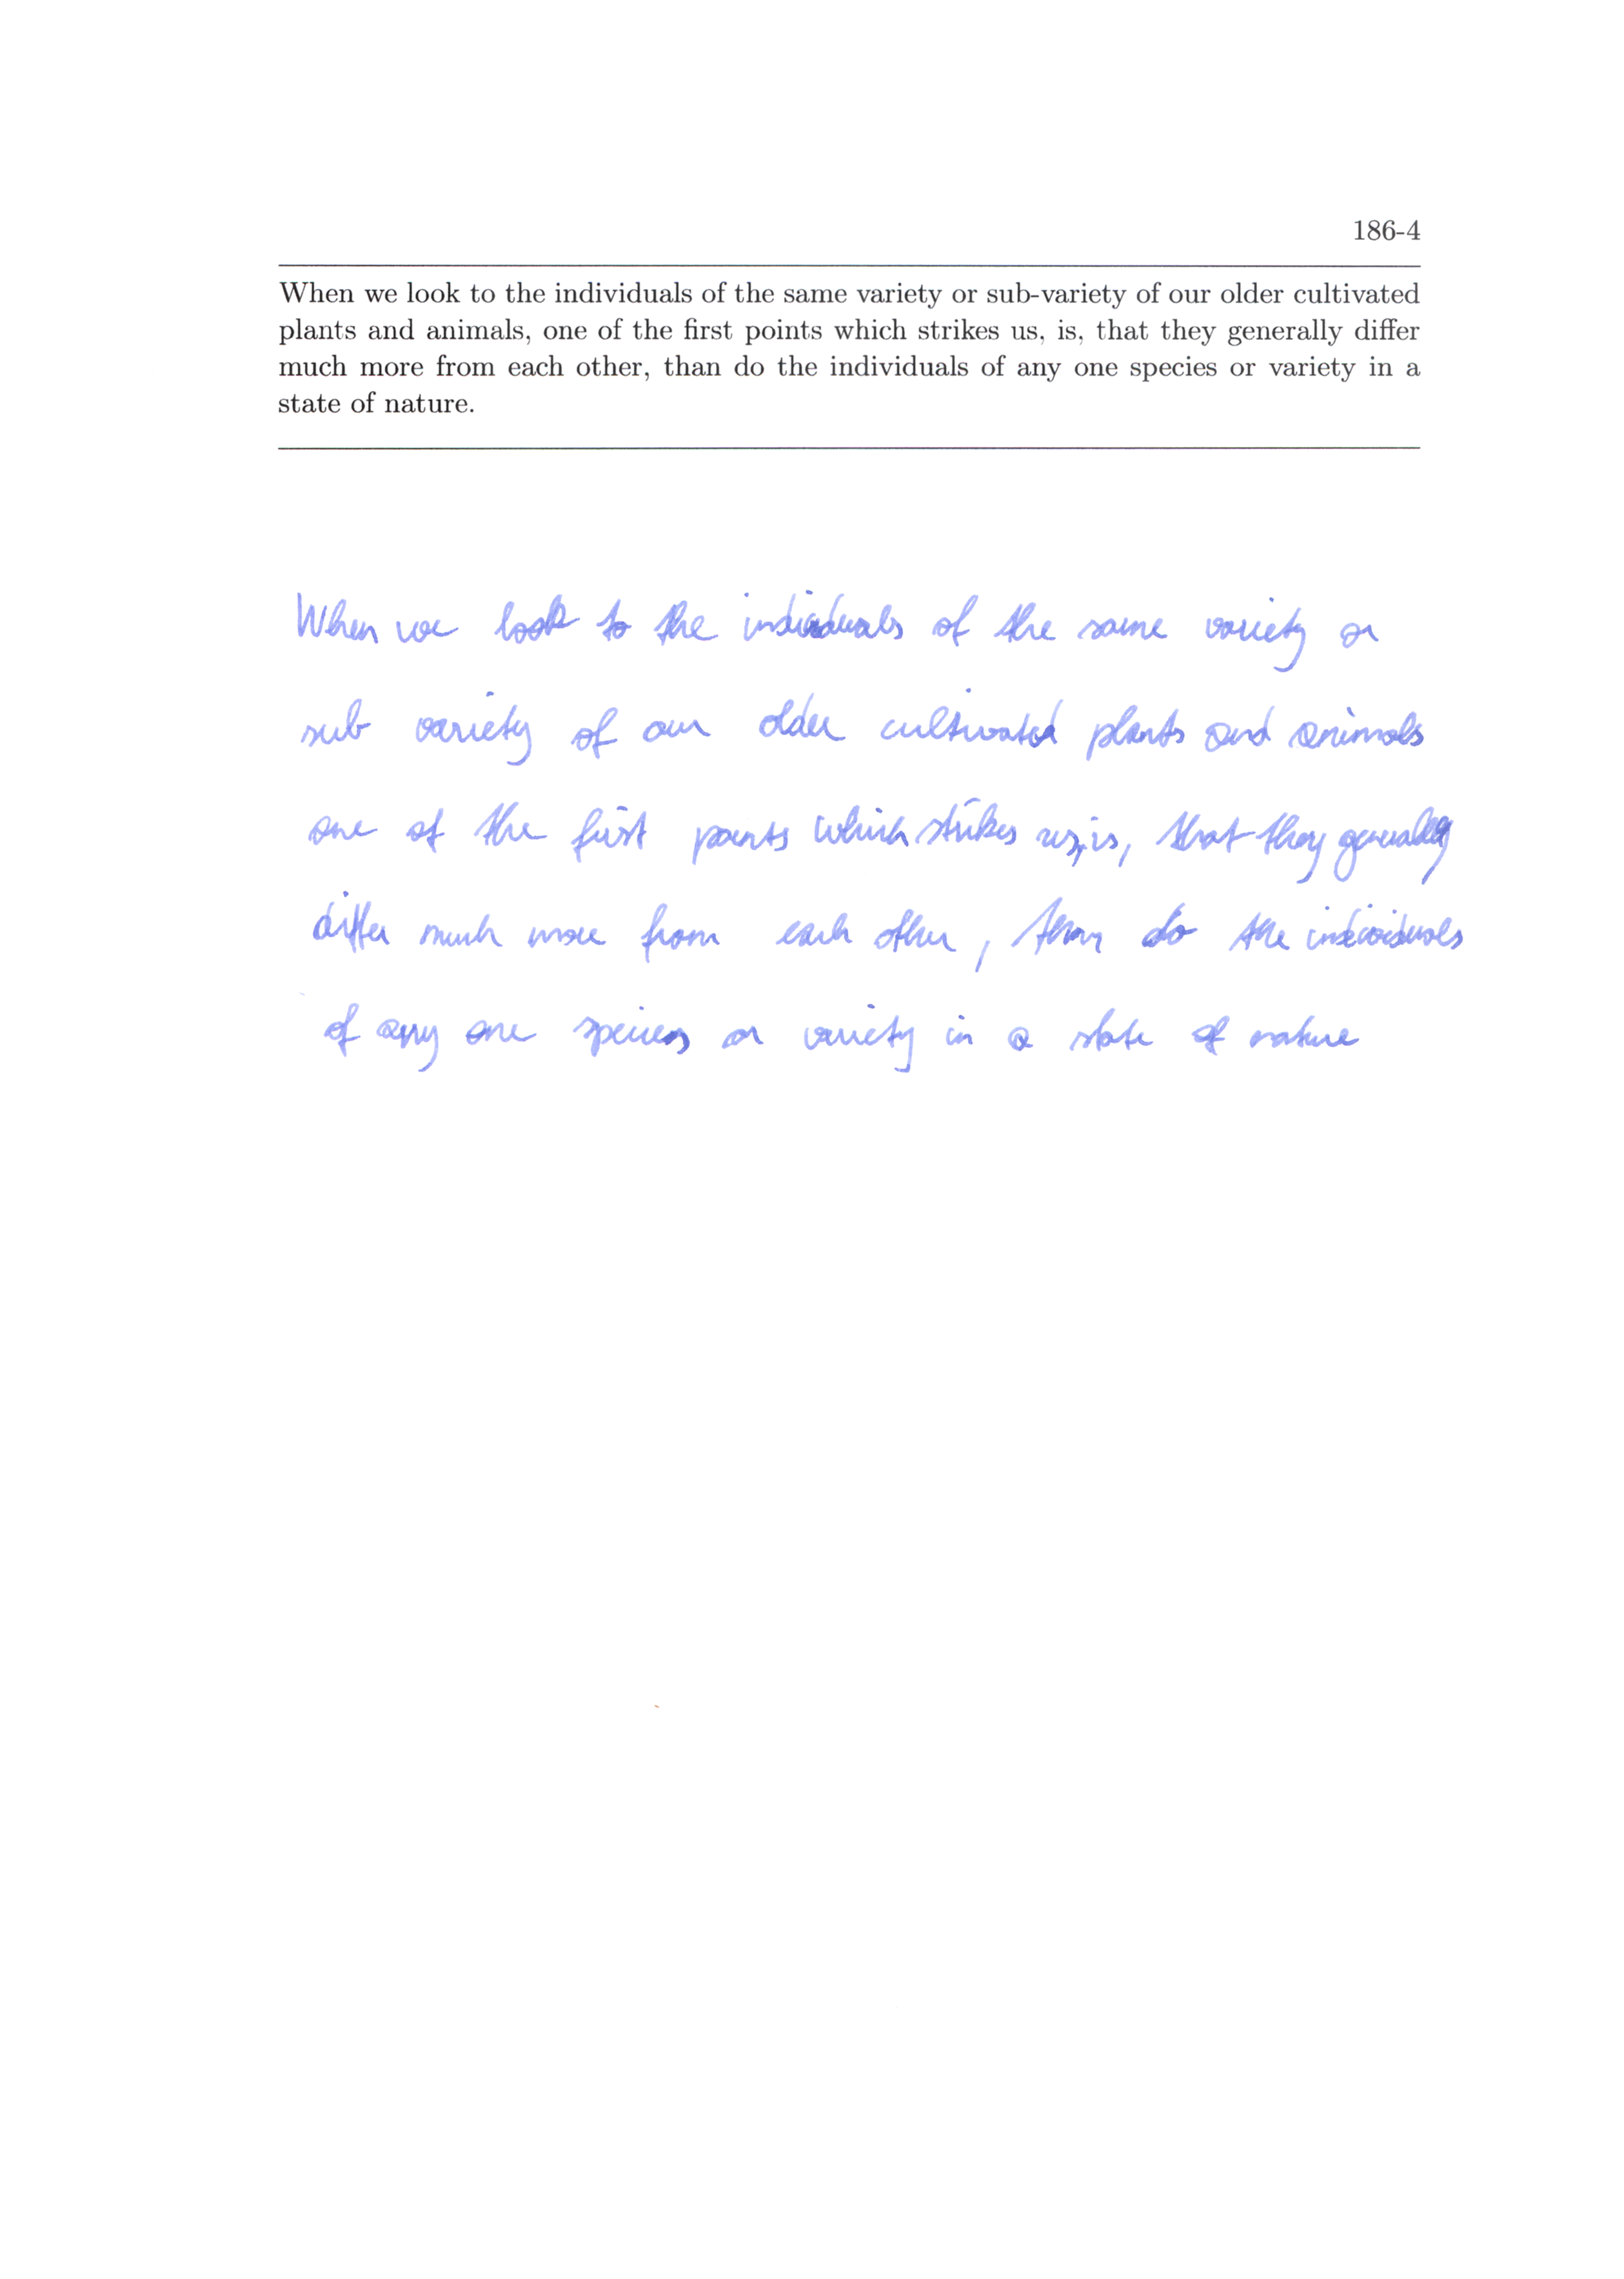 186-4
When we look to the individuals of the same variety or sub-variety of our older cultivated
plants and animals, one of the first points which strikes us, is, that they generally differ
much more from each other, than do the individuals of any one species or variety in a
state of nature.
When we look to the individuals of the same variety or
sub variety of our older cultivated plants and animals
one of the first points which strikes us, is, that they generally
differ much more from each other, than do the individuals
of any one species or variety in a state of nature